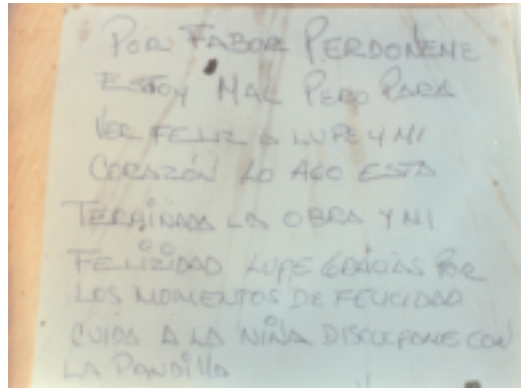 POR FABOR PERDONENE
ESTOY MAL PERO PARA
VER FELIZ A LUPE Y MI
CORAZÓN LO AGO ESTA
TERMINADA LA OBRA Y MI
FELIZIDAD LUPE GRACIAS POR
LOS MOMENTOS DE FELICIDAD
CUIDA A LA NIÑA DISCULPAME CON
LA PANDILLA